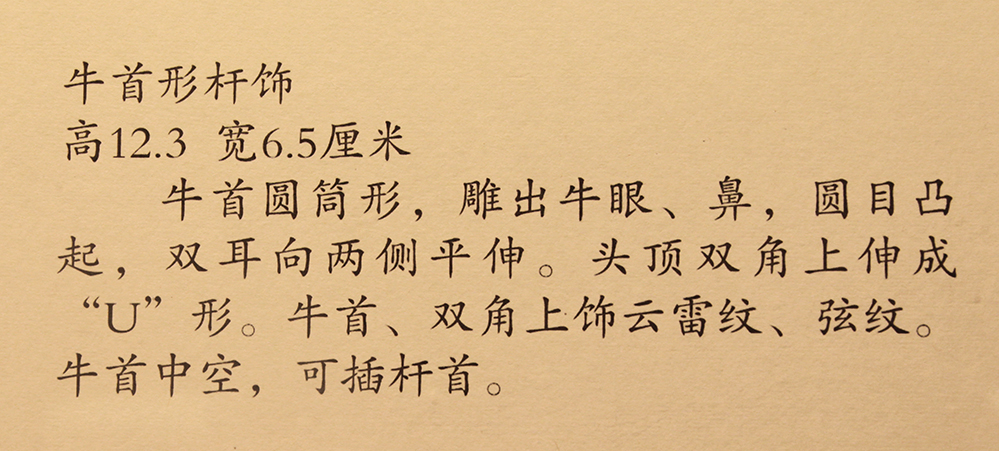 牛首形杆饰
高12.3 宽6.5厘米
牛首圆筒形，雕出牛眼、鼻，圆目凸
起，双耳向两侧平伸。头顶双角上伸成
“U”形。牛首、双角上饰云雷纹、弦纹。
牛首中空，可插杆首。